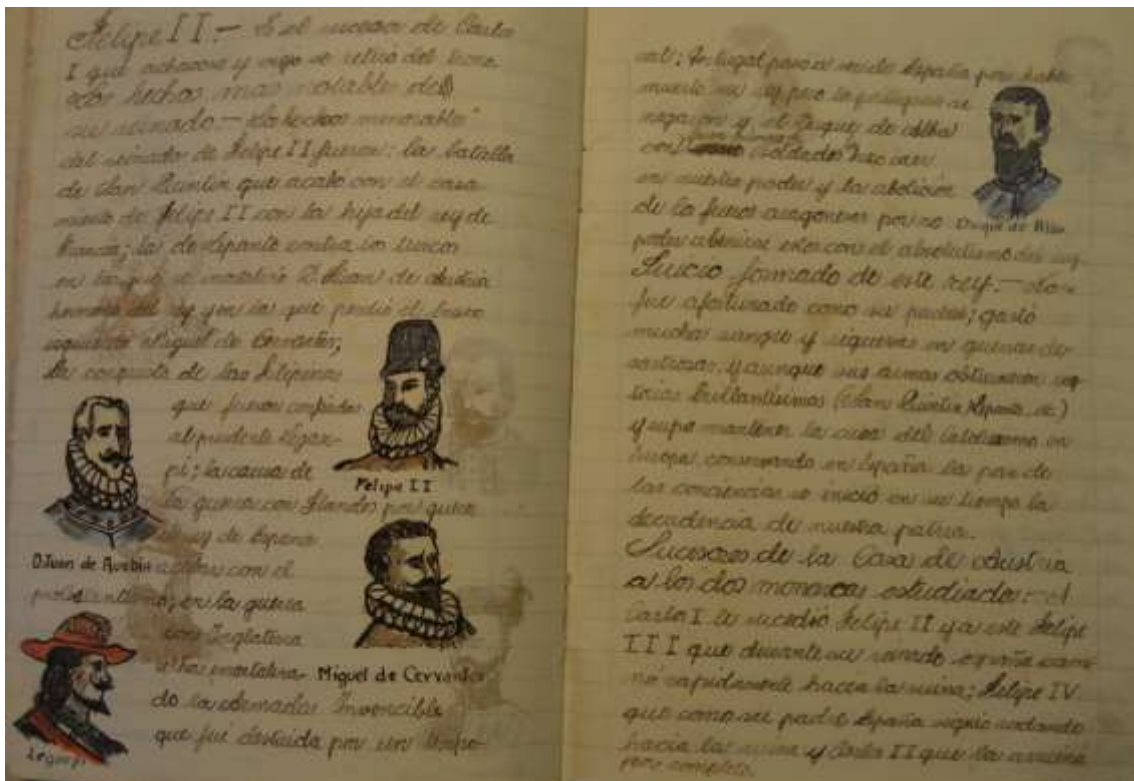 Felipe II.— Es el sucesor de Carlos
I que achacoso y viejo se retiró del trono.
Los hechos mas notables de
su reinado.— Los hechos memorables
del reinado de Felipe II fueron: la batalla
de San Quintin que acabo con el casa
miento de Felipe II con la hija del rey de
Francia; la de Lepanto contra los turcos
en la que se D. Juan de Austria
hermano del rey y en la que perdió el brazo
izquierdo Miguel de Cervantes;
la conquista de las Filipinas
que fueron
al prudente Legaz-
pi; la causa de
la guerra con Flandes por querer
el rey de España
con el
protestantismo; en la guerra
con Inglaterra
do la Armada Invencible
que fué destruida por un tempo-
Felipe II
D. Juan de Austria
Miguel de Cervantes
Legazpi
ral; Portugal paso a ser de España por haber
muerto su rey pero los se
negaron y el Duque de Alba
con soldados hizo caer
en nuestro poder y la abolición
de los fueros aragoneses por no
poder estos con el absolutismo del rey
Duque de Alba
Juicio formado de este rey.— No
fue afortunado como su padre; gastó
mucha sangre y riquezas en guerras de-
sastrosas, y aunque sus armas obtuvieron vic-
torias brillantisimas (San Quintin Lepanto, etc)
y supo mantener la causa del Catolicismo en
Europa conservando en España la paz de
las conciencias se inició en su tiempo la
decadencia de nuestra patria.
Sucesores de la Casa de Austria
a los dos monarcas estudiados:— A
Carlos I le sucedió Felipe II y a este Felipe
III que durante su reinado españa cami
nó rapidamente hacia la ruina; Felipe IV
que como su padre España siguió rodando
hacia la ruina y Carlos II que la
por completo.